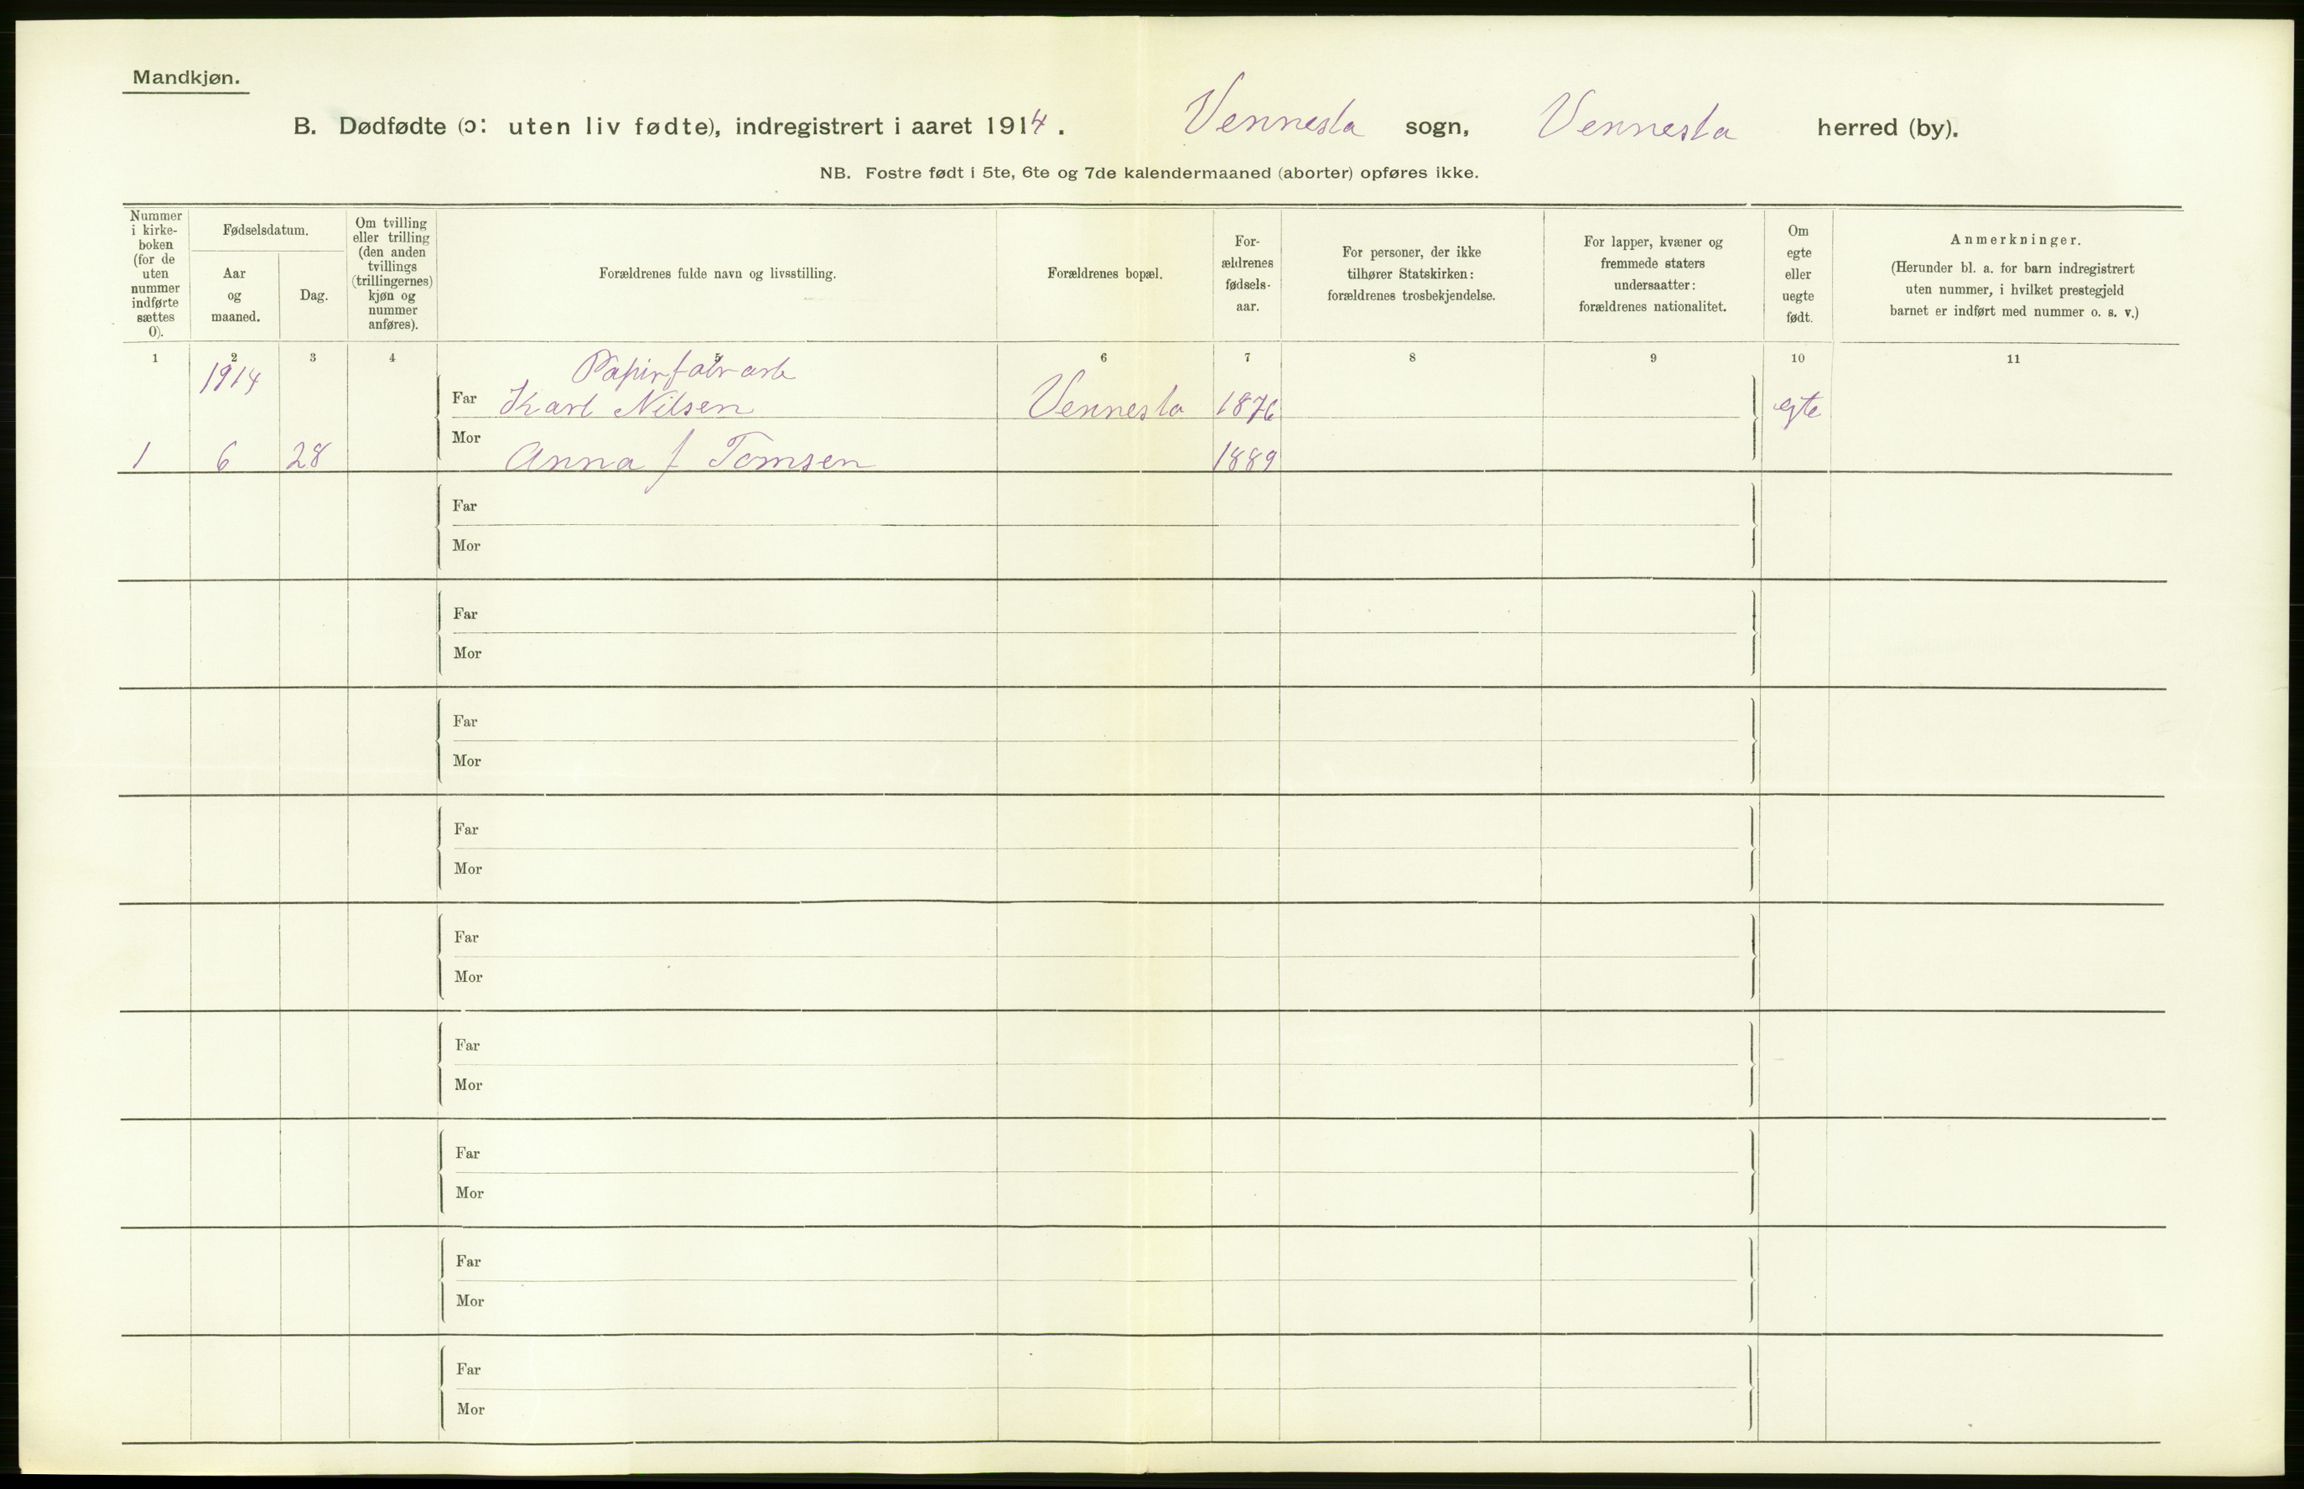 Mandkjøn.
B. Dødfødte (ɔ: uten liv fødte), indregistrert i aaret 1914. Vennesla sogn, Vennesla herred (by).
NB. Fostre født i 5te, 6te og 7de kalendermaaned (aborter) opføres ikke.
Nummer
i kirke-
boken
(for de
uten
nummer
indførte
sættes
0).
Fødselsdatum.
Aar
og
maaned.
Dag.
Om tvilling
eller trilling
(den anden
tvillings
(trillingernes)
kjøn og
nummer
anføres).
Forældrenes fulde navn og livsstilling.
Forældrenes bopæl.
For-
ældrenes
fødsels-
aar.
For personer, der ikke
tilhører Statskirken:
forældrenes trosbekjendelse.
For lapper, kvæner og
fremmede staters
undersaatter:
forældrenes nationalitet.
Om
egte
eller
uegte
født.
Anmerkninger.
(Herunder bl. a. for barn indregistrert
uten nummer, i hvilket prestegjeld
barnet er indført med nummer o. s. v.)
1 2 3 4 5 6 7 8 9 10 11
1914 Papirfabrarb
Far Karl Nilsen Vennesla 1876 egte
1 6 28 Mor Anna f Tomsen 1889
Far
Mor
Far
Mor
Far
Mor
Far
Mor
Far
Mor
Far
Mor
Far
Mor
Far
Mor
Far
Mor